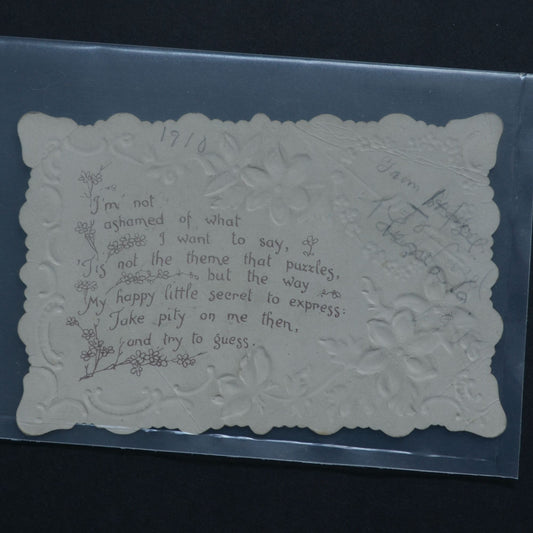 1910
I'm not
ashamed of what
I want to say,
'Tis not the theme that puzzles,
but the way
My happy little secret to express:
Take pity on me then,
and try to guess.
From
To